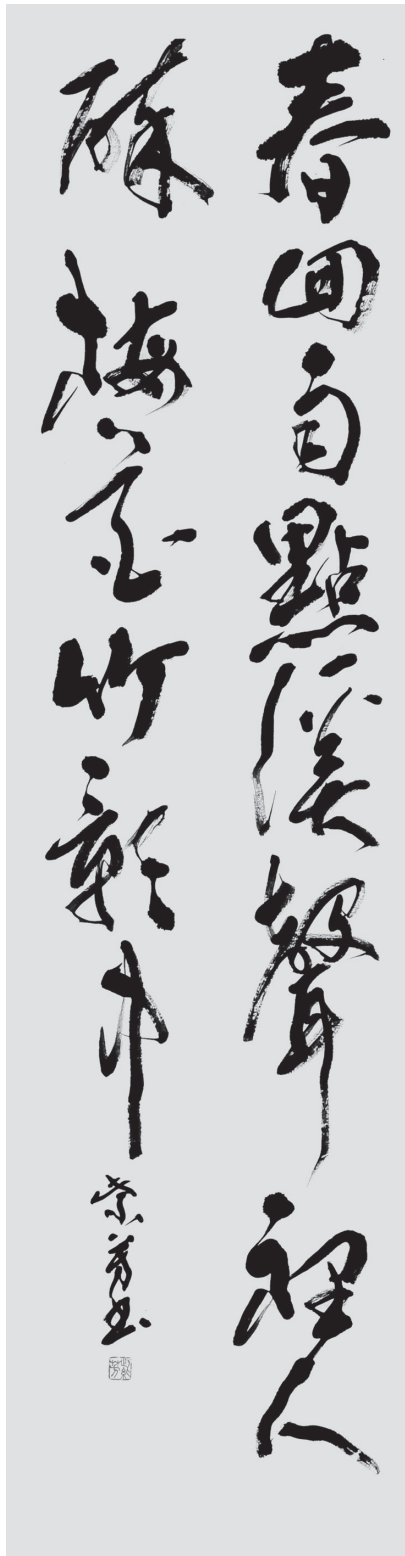 春回雨點溪聲裡人
醉梅花竹影中
芳書